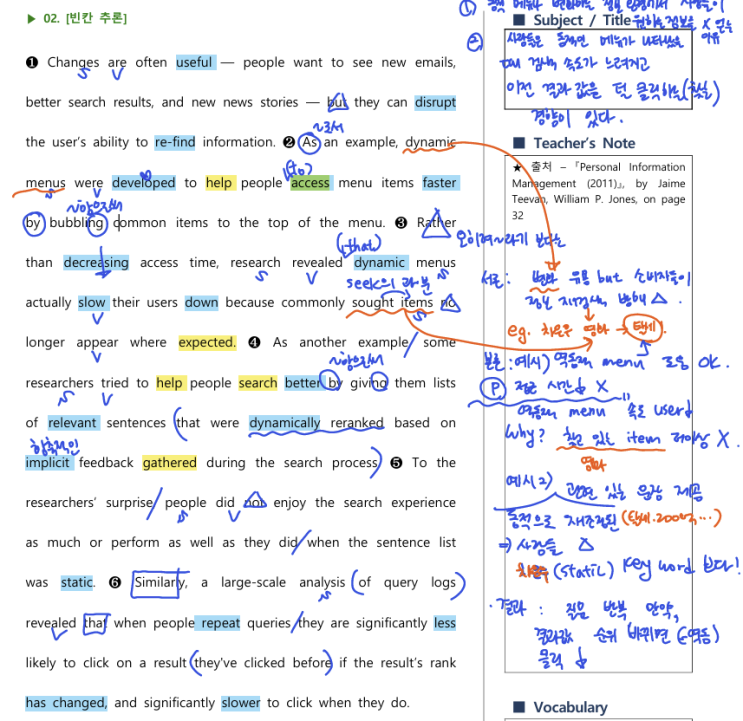 ▶ 02. [빈칸 추론]
❶ Changes are often useful — people want to see new emails,
better search results, and new news stories — but they can disrupt
the user's ability to re-find information. ❷ As an example, dynamic
(to)
menus were developed to help people access menu items faster
by bubbling common items to the top of the menu. ❸ Rather
(that)
than decreasing access time, research revealed dynamic menus
seek의 과분
actually slow their users down because commonly sought items no
longer appear where expected. ❹ As another example, some
researchers tried to help people search better by giving them lists
of relevant sentences (that were dynamically reranked based on
함축적인
implicit feedback gathered during the search process) ❺ To the
researchers' surprise, people did not enjoy the search experience
as much or perform as well as they did when the sentence list
was static. ❻ Similarly, a large-scale analysis (of query logs)
revealed that when people repeat queries, they are significantly less
likely to click on a result (they've clicked before) if the result's rank
has changed, and significantly slower to click when they do.
■ Subject / Title
②
사람들은 동적인 메뉴가 나타났을
때 검색 속도가 느려지고
이전 결과 값을 덜 클릭하는
경향이 있다.
■ Teacher's Note
★ 출처 – 『Personal Information
Management (2011)』, by Jaime
Teevan, William P. Jones, on page
32
서론: 변화 유용 but 소비자들이
정보 재검색 방해 △.
eg. 영화 →
본론: 예시) 역동적 menu 도움 OK.
Ⓟ 접근 시간↓ X
역동적 menu 속도 user↓
Why? 찾고 있는 item 더이상 X.
영화
예시2) 관련 있는 문장 제공
동적으로 재조정된
⇒ 사람들 △
(static) key word 본다!
· 결과: 질문 반복 만약,
결과값 순위 바뀌면 (역동)
클릭 ↓
■ Vocabulary